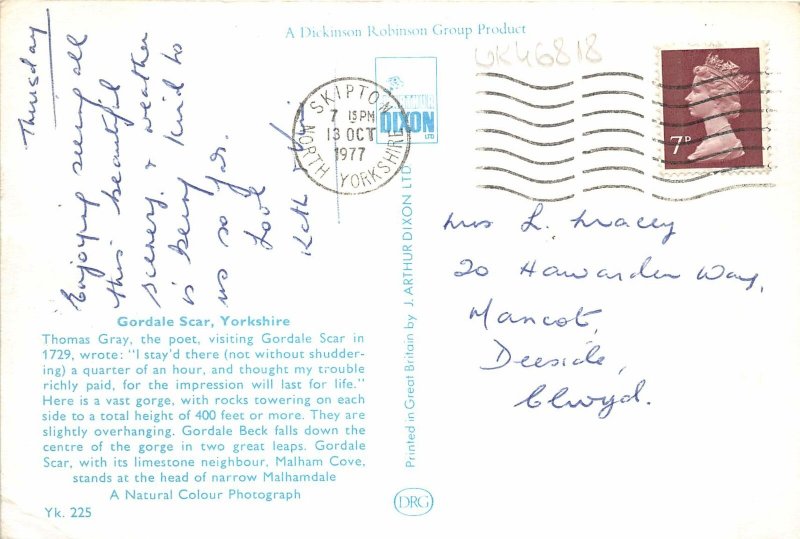 A Dickinson Robinson Group Product
UK46818
Thursday
Enjoying seeing all
this beautiful
scenery & weather
is being kind to
us so far.
Love
Kath
ARTHUR
DIXON
LTD
SKIPTON
7 15 PM
13 OCT
1977
NORTH YORKSHIRE
7P
Mrs L. Macey
20 Hawarden Way,
Mancot,
Deeside,
Clwyd.
Gordale Scar, Yorkshire
Thomas Gray, the poet, visiting Gordale Scar in
1729, wrote: "I stay'd there (not without shudder-
ing) a quarter of an hour, and thought my trouble
richly paid, for the impression will last for life."
Here is a vast gorge, with rocks towering on each
side to a total height of 400 feet or more. They are
slightly overhanging. Gordale Beck falls down the
centre of the gorge in two great leaps. Gordale
Scar, with its limestone neighbour, Malham Cove,
stands at the head of narrow Malhamdale
A Natural Colour Photograph
Yk. 225
Printed in Great Britain by J. ARTHUR DIXON LTD
DRG